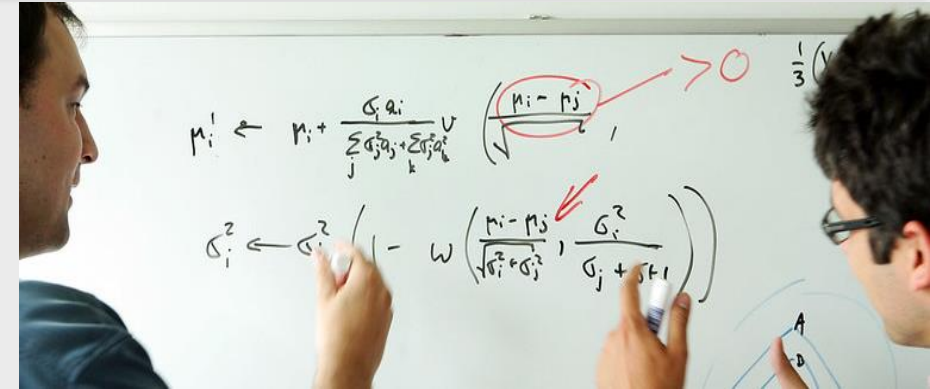 μi' ← μi + σi ai / (Σj σj² aj + Σk σk² ak²) v ( (μi - μj) / √ ² , > 0
1/3 (
σi² ← σi² ( 1 - w ( (μi - μj) / √(σi² + σj²) , σi² / (σj + σ+1) ) )
A
D